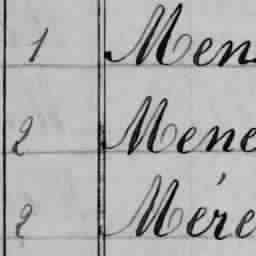 1 Men
2 Mene
2 Mére